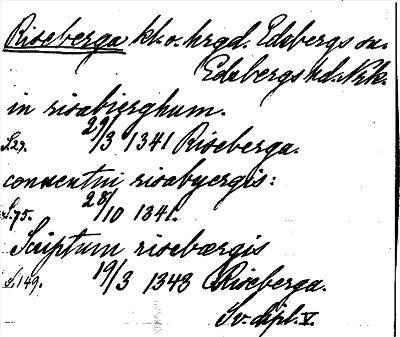 Riseberga kl. o. hrgd. Edsbergs sn.
Edsbergs hd. Nrk.
in risabierghum.
S. 29. 29/3 1341 Riseberga.
conuentui risabyergis:
S. 75. 28/10 1341.
Scriptum risebærgis
S. 149. 19/3 1343 Riseberga.
Sv. dipl. V.